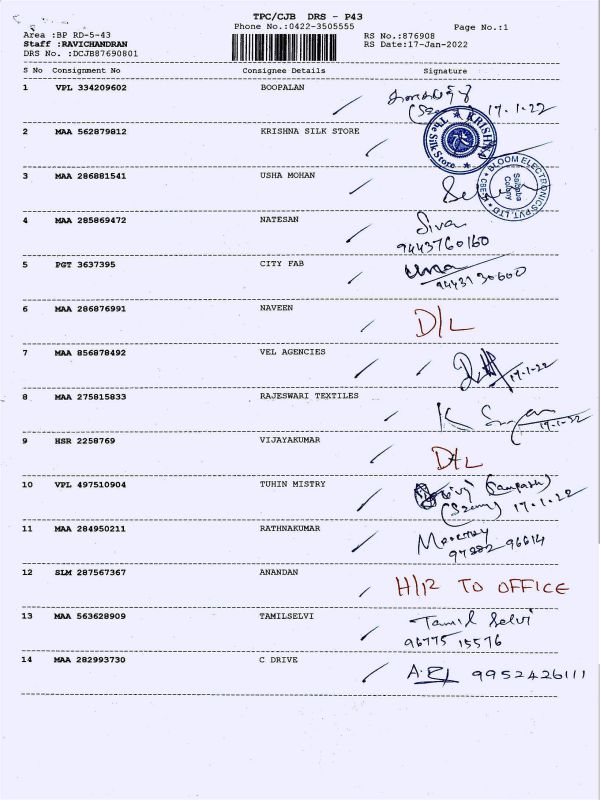 TPC/CJB DRS - P43
Phone No.:0422-3505555
Page No.:1
Area :BP RD-5-43
RS No.:876908
Staff :RAVICHANDRAN
RS Date:17-Jan-2022
DRS No. :DCJB87690801
S No Consignment No Consignee Details Signature
1 VPL 334209602 BOOPALAN
17-1-22
2 MAA 562879812 KRISHNA SILK STORE
KRISHNA The Silk Store
3 MAA 286881541 USHA MOHAN
BLOOM ELECTRONICS PVT. LTD CBE
Saibaba Colony
4 MAA 285869472 NATESAN Siva
9443760160
5 PGT 3637395 CITY FAB
9443130600
6 MAA 286876991 NAVEEN D/L
7 MAA 856878492 VEL AGENCIES
17-1-22
8 MAA 275815833 RAJESWARI TEXTILES K
17-1-22
9 HSR 2258769 VIJAYAKUMAR D/L
10 VPL 497510904 TUHIN MISTRY
17-1-22
11 MAA 284950211 RATHNAKUMAR
96614
12 SLM 287567367 ANANDAN H/12 TO OFFICE
13 MAA 563628909 TAMILSELVI Tamil Selvi
96775 15576
14 MAA 282993730 C DRIVE 9952426111